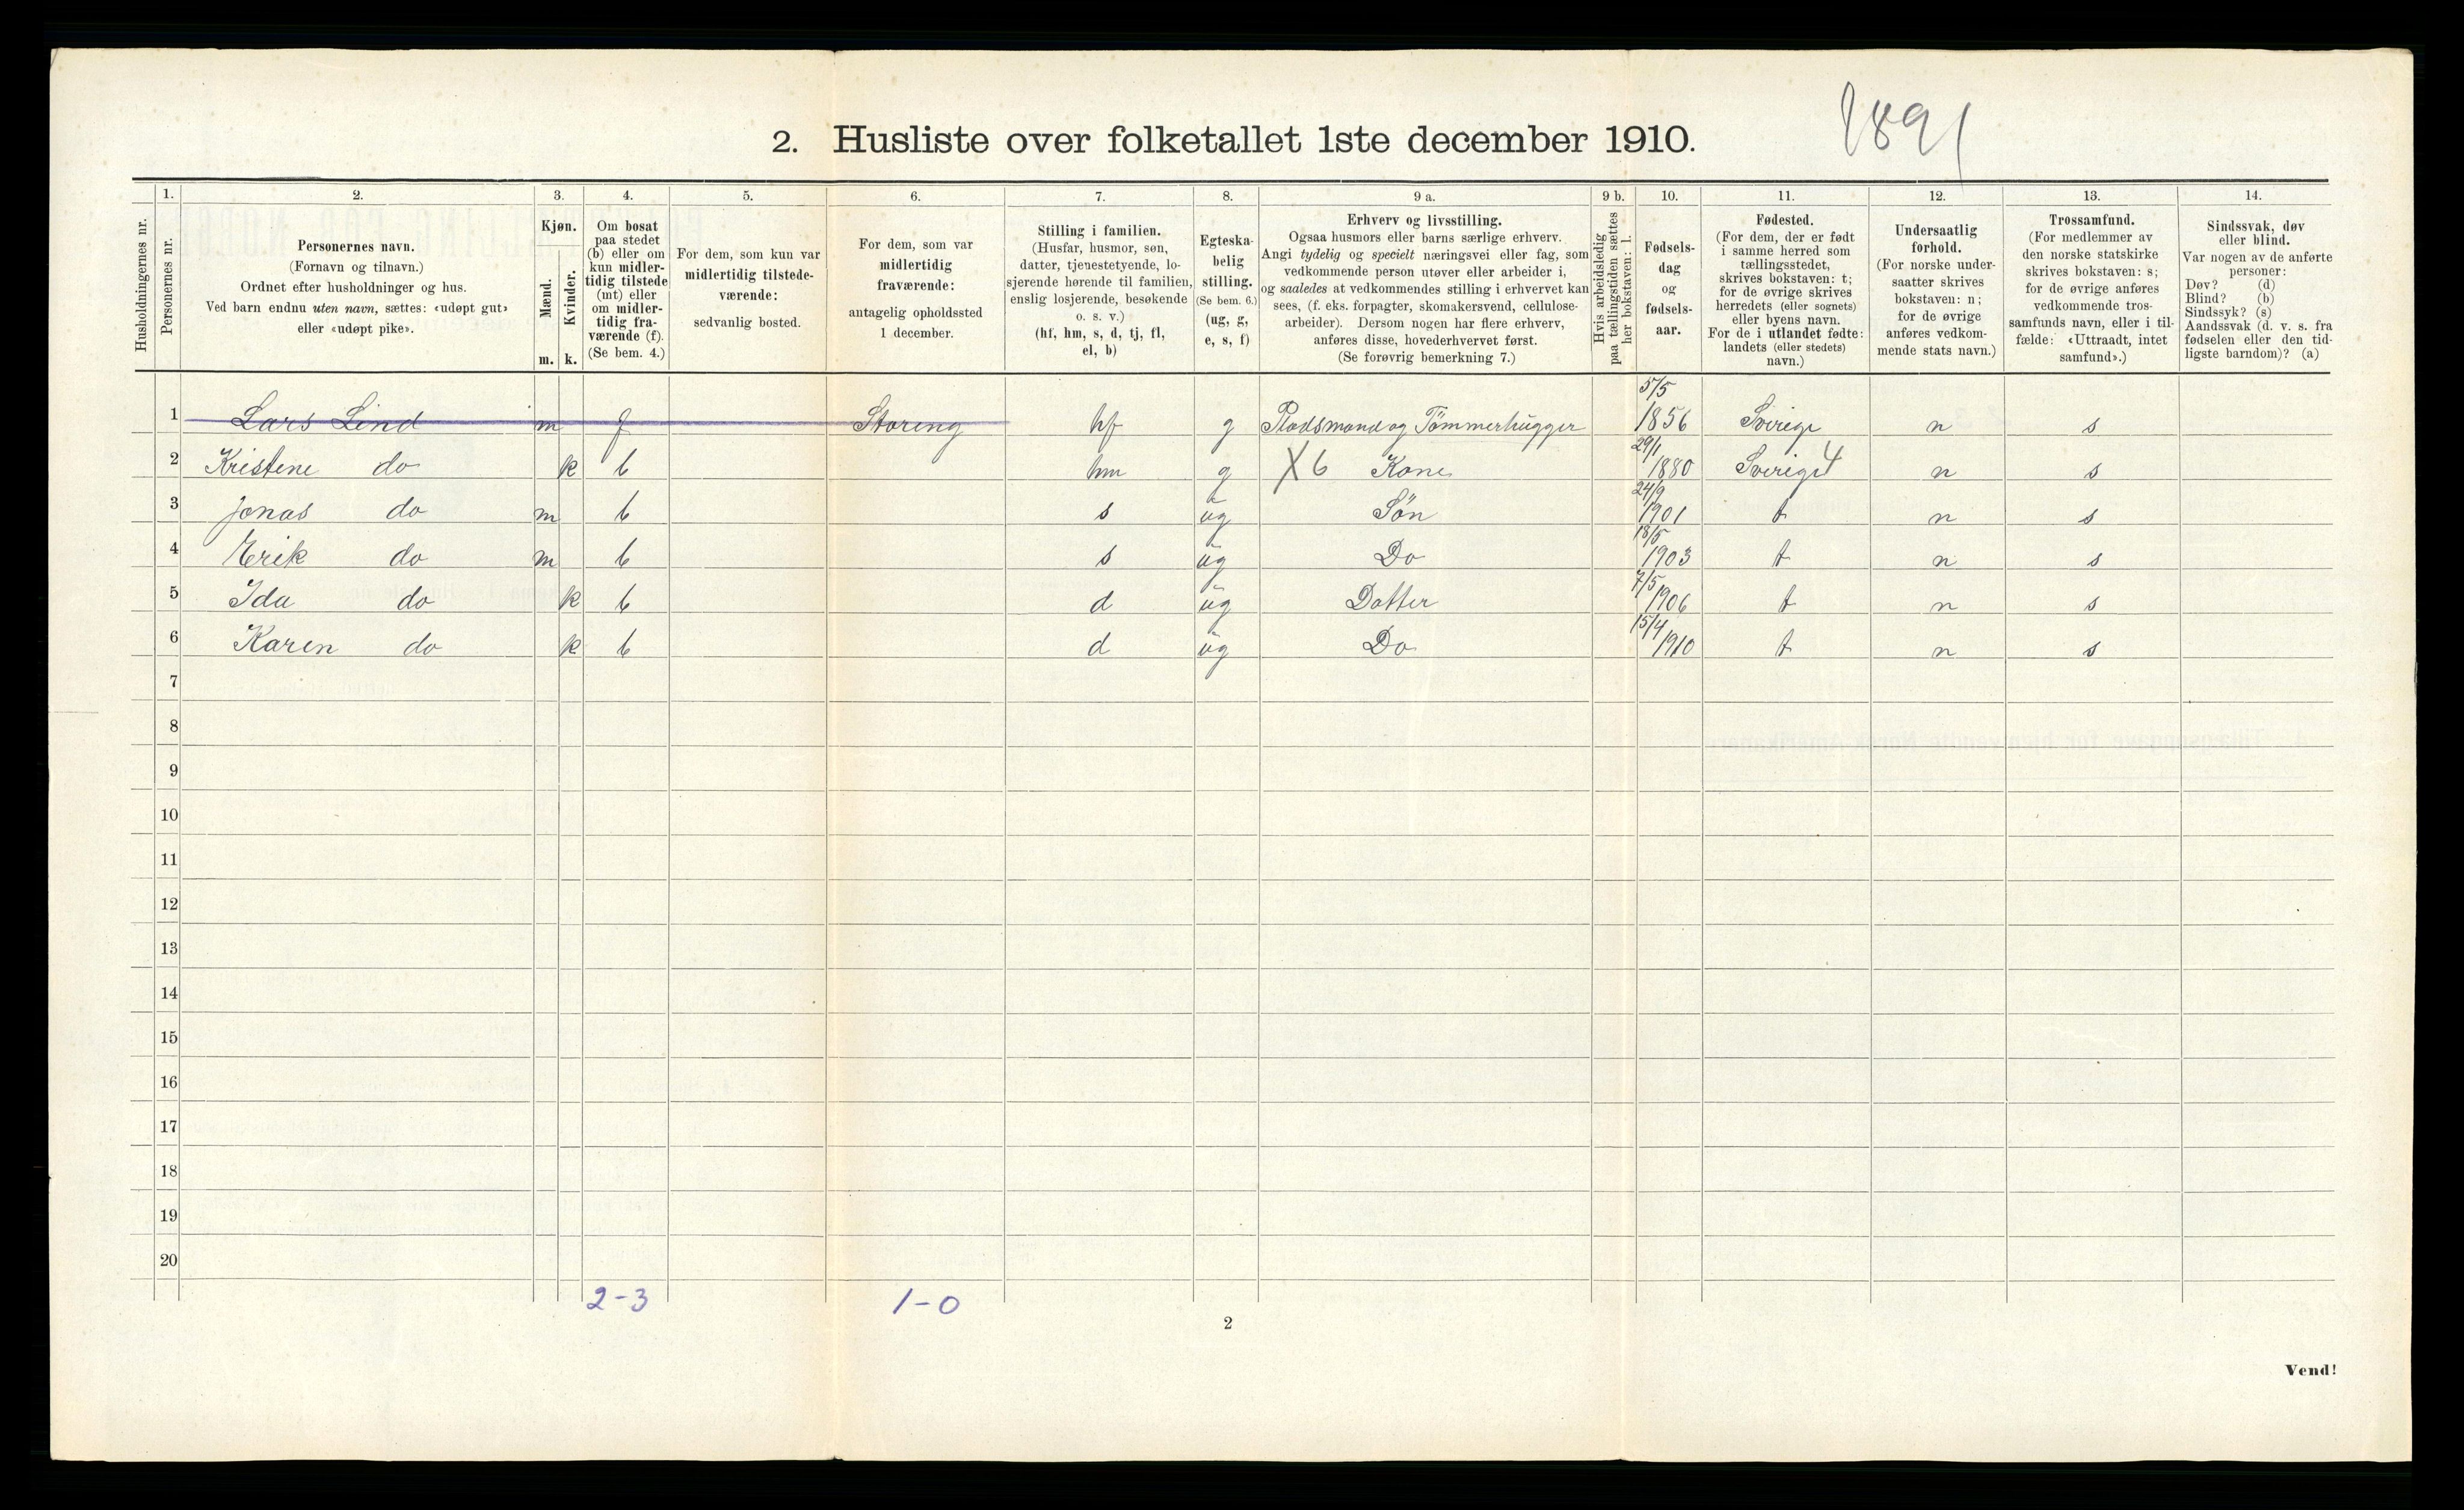 1891
2. Husliste over folketallet 1ste december 1910.
1. 2. 3. 4. 5. 6. 7. 8. 9 a. 9 b. 10. 11. 12. 13. 14.
Husholdningernes nr.
Personernes nr.
Personernes navn.
(Fornavn og tilnavn.)
Ordnet efter husholdninger og hus.
Ved barn endnu uten navn, sættes: «udøpt gut»
eller «udøpt pike».
Kjøn.
Mænd.
m.
Kvinder.
k.
Om bosat
paa stedet
(b) eller om
kun midler-
tidig tilstede
(mt) eller
om midler-
tidig fra-
værende (f).
(Se bem. 4.)
For dem, som kun var
midlertidig tilstede-
værende:
sedvanlig bosted.
For dem, som var
midlertidig
fraværende:
antagelig opholdssted
1 december.
Stilling i familien.
(Husfar, husmor, søn,
datter, tjenestetyende, lo-
sjerende hørende til familien,
enslig losjerende, besøkende
o. s. v.)
(hf, hm, s, d, tj, fl,
el, b)
Egteska-
belig
stilling.
(Se bem. 6.)
(ug, g,
e, s, f)
Erhverv og livsstilling.
Ogsaa husmors eller barns særlige erhverv.
Angi tydelig og specielt næringsvei eller fag, som
vedkommende person utøver eller arbeider i,
og saaledes at vedkommendes stilling i erhvervet kan
sees, (f. eks. forpagter, skomakersvend, cellulose-
arbeider). Dersom nogen har flere erhverv,
anføres disse, hovederhvervet først.
(Se forøvrig bemerkning 7.)
Hvis arbeidsledig
paa tællingstiden sættes
her bokstaven: l.
Fødsels-
dag
og
fødsels-
aar.
Fødested.
(For dem, der er født
i samme herred som
tællingsstedet,
skrives bokstaven: t;
for de øvrige skrives
herredets (eller sognets)
eller byens navn.
For de i utlandet fødte:
landets (eller stedets)
navn.)
Undersaatlig
forhold.
(For norske under-
saatter skrives
bokstaven: n;
for de øvrige
anføres vedkom-
mende stats navn.)
Trossamfund.
(For medlemmer av
den norske statskirke
skrives bokstaven: s;
for de øvrige anføres
vedkommende tros-
samfunds navn, eller i til-
fælde: «Uttraadt, intet
samfund».)
Sindssvak, døv
eller blind.
Var nogen av de anførte
personer:
Døv? (d)
Blind? (b)
Sindssyk? (s)
Aandssvak (d. v. s. fra
fødselen eller den tid-
ligste barndom)? (a)
1 Lars Lind m f Storeng hf g Pladsmand og Tømmerhugger 5/5 1856 Sverige n s
2 Kristene do k b hm g X 6 Kone 29/1 1880 Sverige 4 n s
3 Jonas do m b s ug Søn 24/9 1901 t n s
4 Erik do m b s ug Do 18/5 1903 t n s
5 Ida do k b d ug Datter 7/5 1906 t n s
6 Karen do k b d ug Do 15/4 1910 t n s
7
8
9
10
11
12
13
14
15
16
17
18
19
20
2-3 1-0
2
Vend!